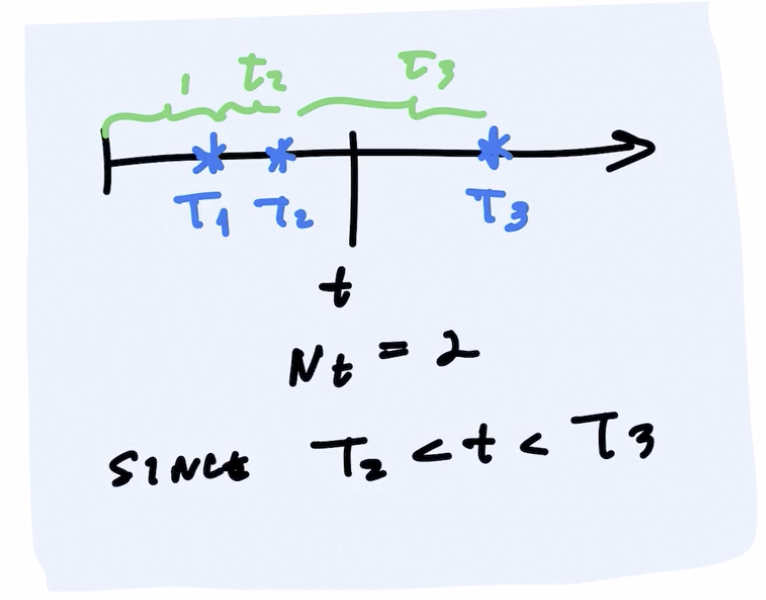 1 t₂ τ₃
T₁ T₂ T₃
t
Nt = 2
SINCE T₂ < t < T₃